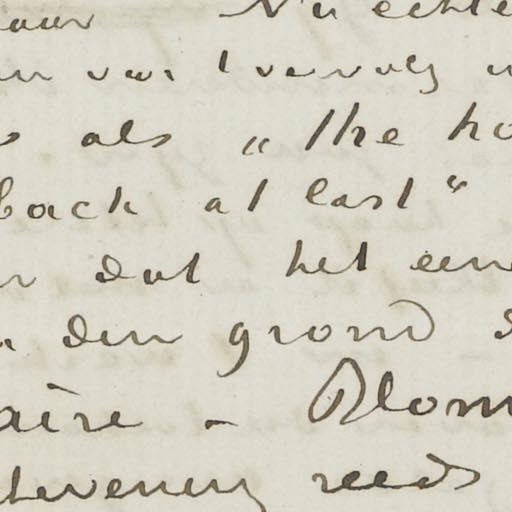 aar Nu echte
en van 't vervolg u
s als „the ho
back at last"
er dat het een
n den grond d
aire – Blom
hevening reeds